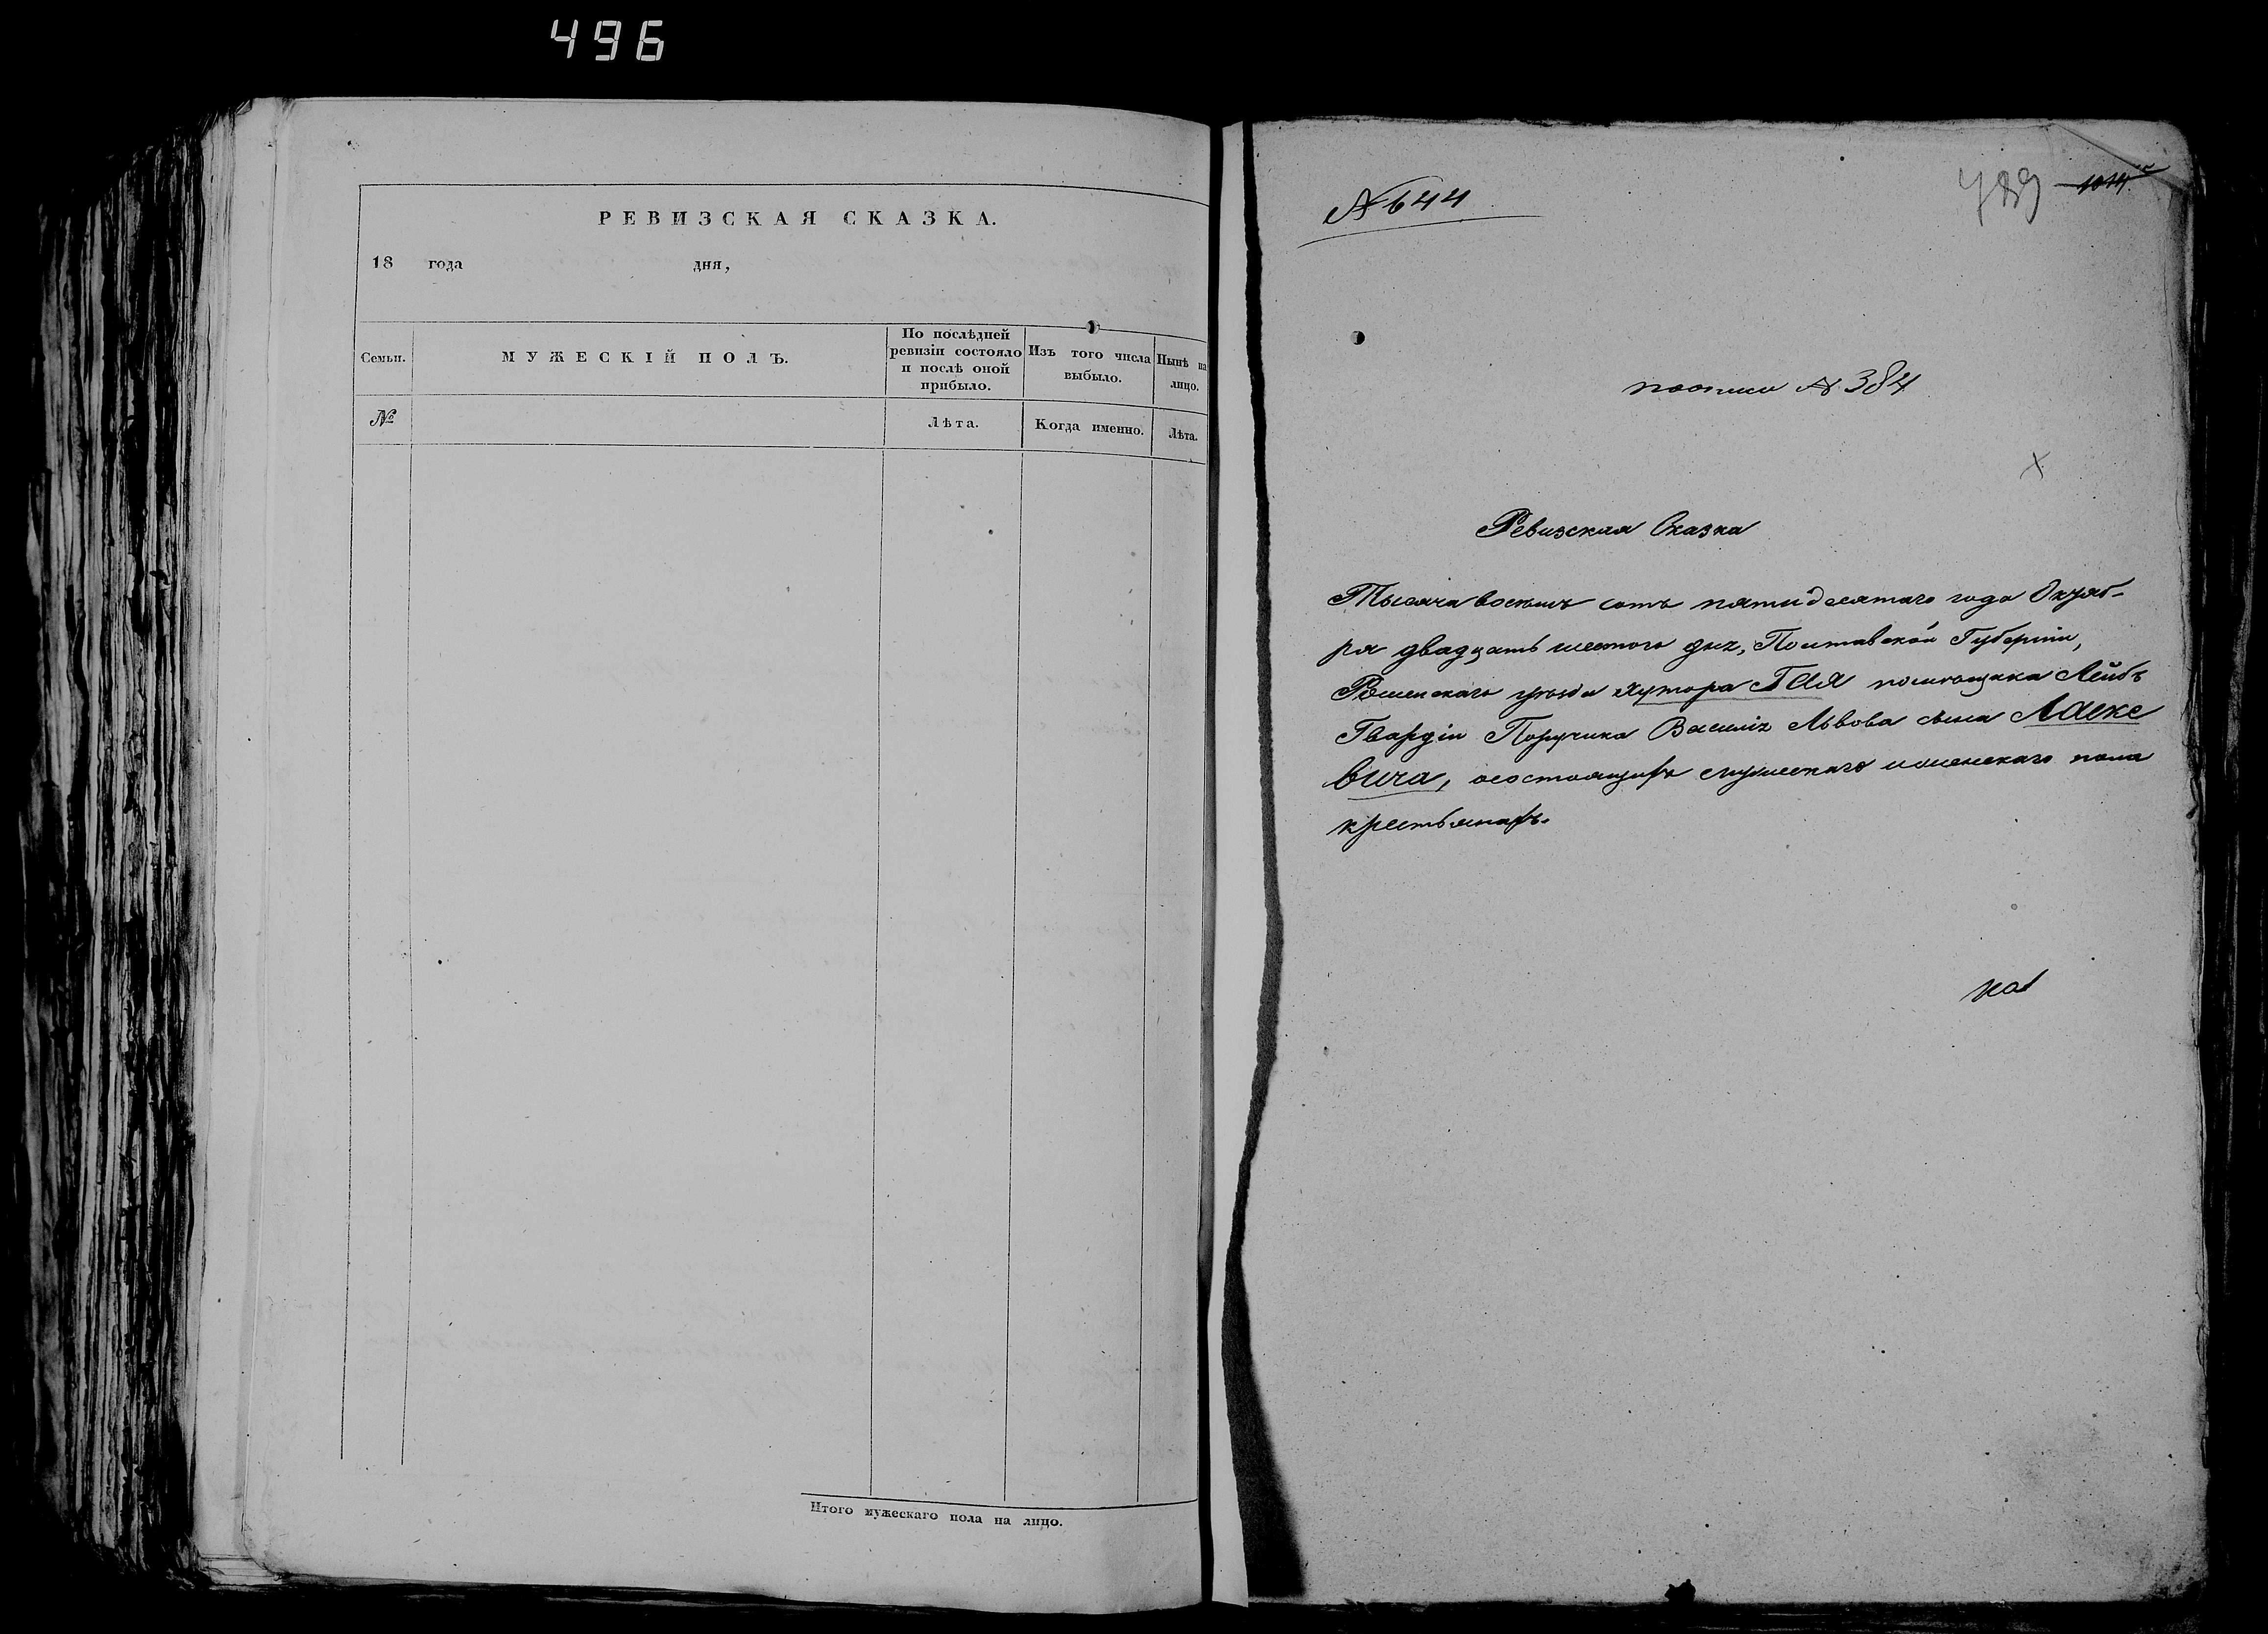 496
РЕВИЗСКАЯ СКАЗКА.
18 года дня,
Семьи.
МУЖЕСКІЙ ПОЛЪ.
По послѣдней ревизіи состояло и послѣ оной прибыло.
Изъ того числа выбыло.
Нынѣ на лицо.
№
Лѣта.
Когда именно.
Лѣта.
Итого мужескаго пола на лицо.
№ 644
789
по описи № 384
Ревизская Сказка
Тысяча восемь сотъ пятидесятаго года Октяб-
ря двадцать шестого дня, Полтавской Губерніи,
Роменскаго уѣзда хутора Гая помѣщика Лейбъ
Гвардіи Поручика Василія Львова сына Ласке
вича, о состоящихъ мужескаго и женскаго пола
крестьянахъ.